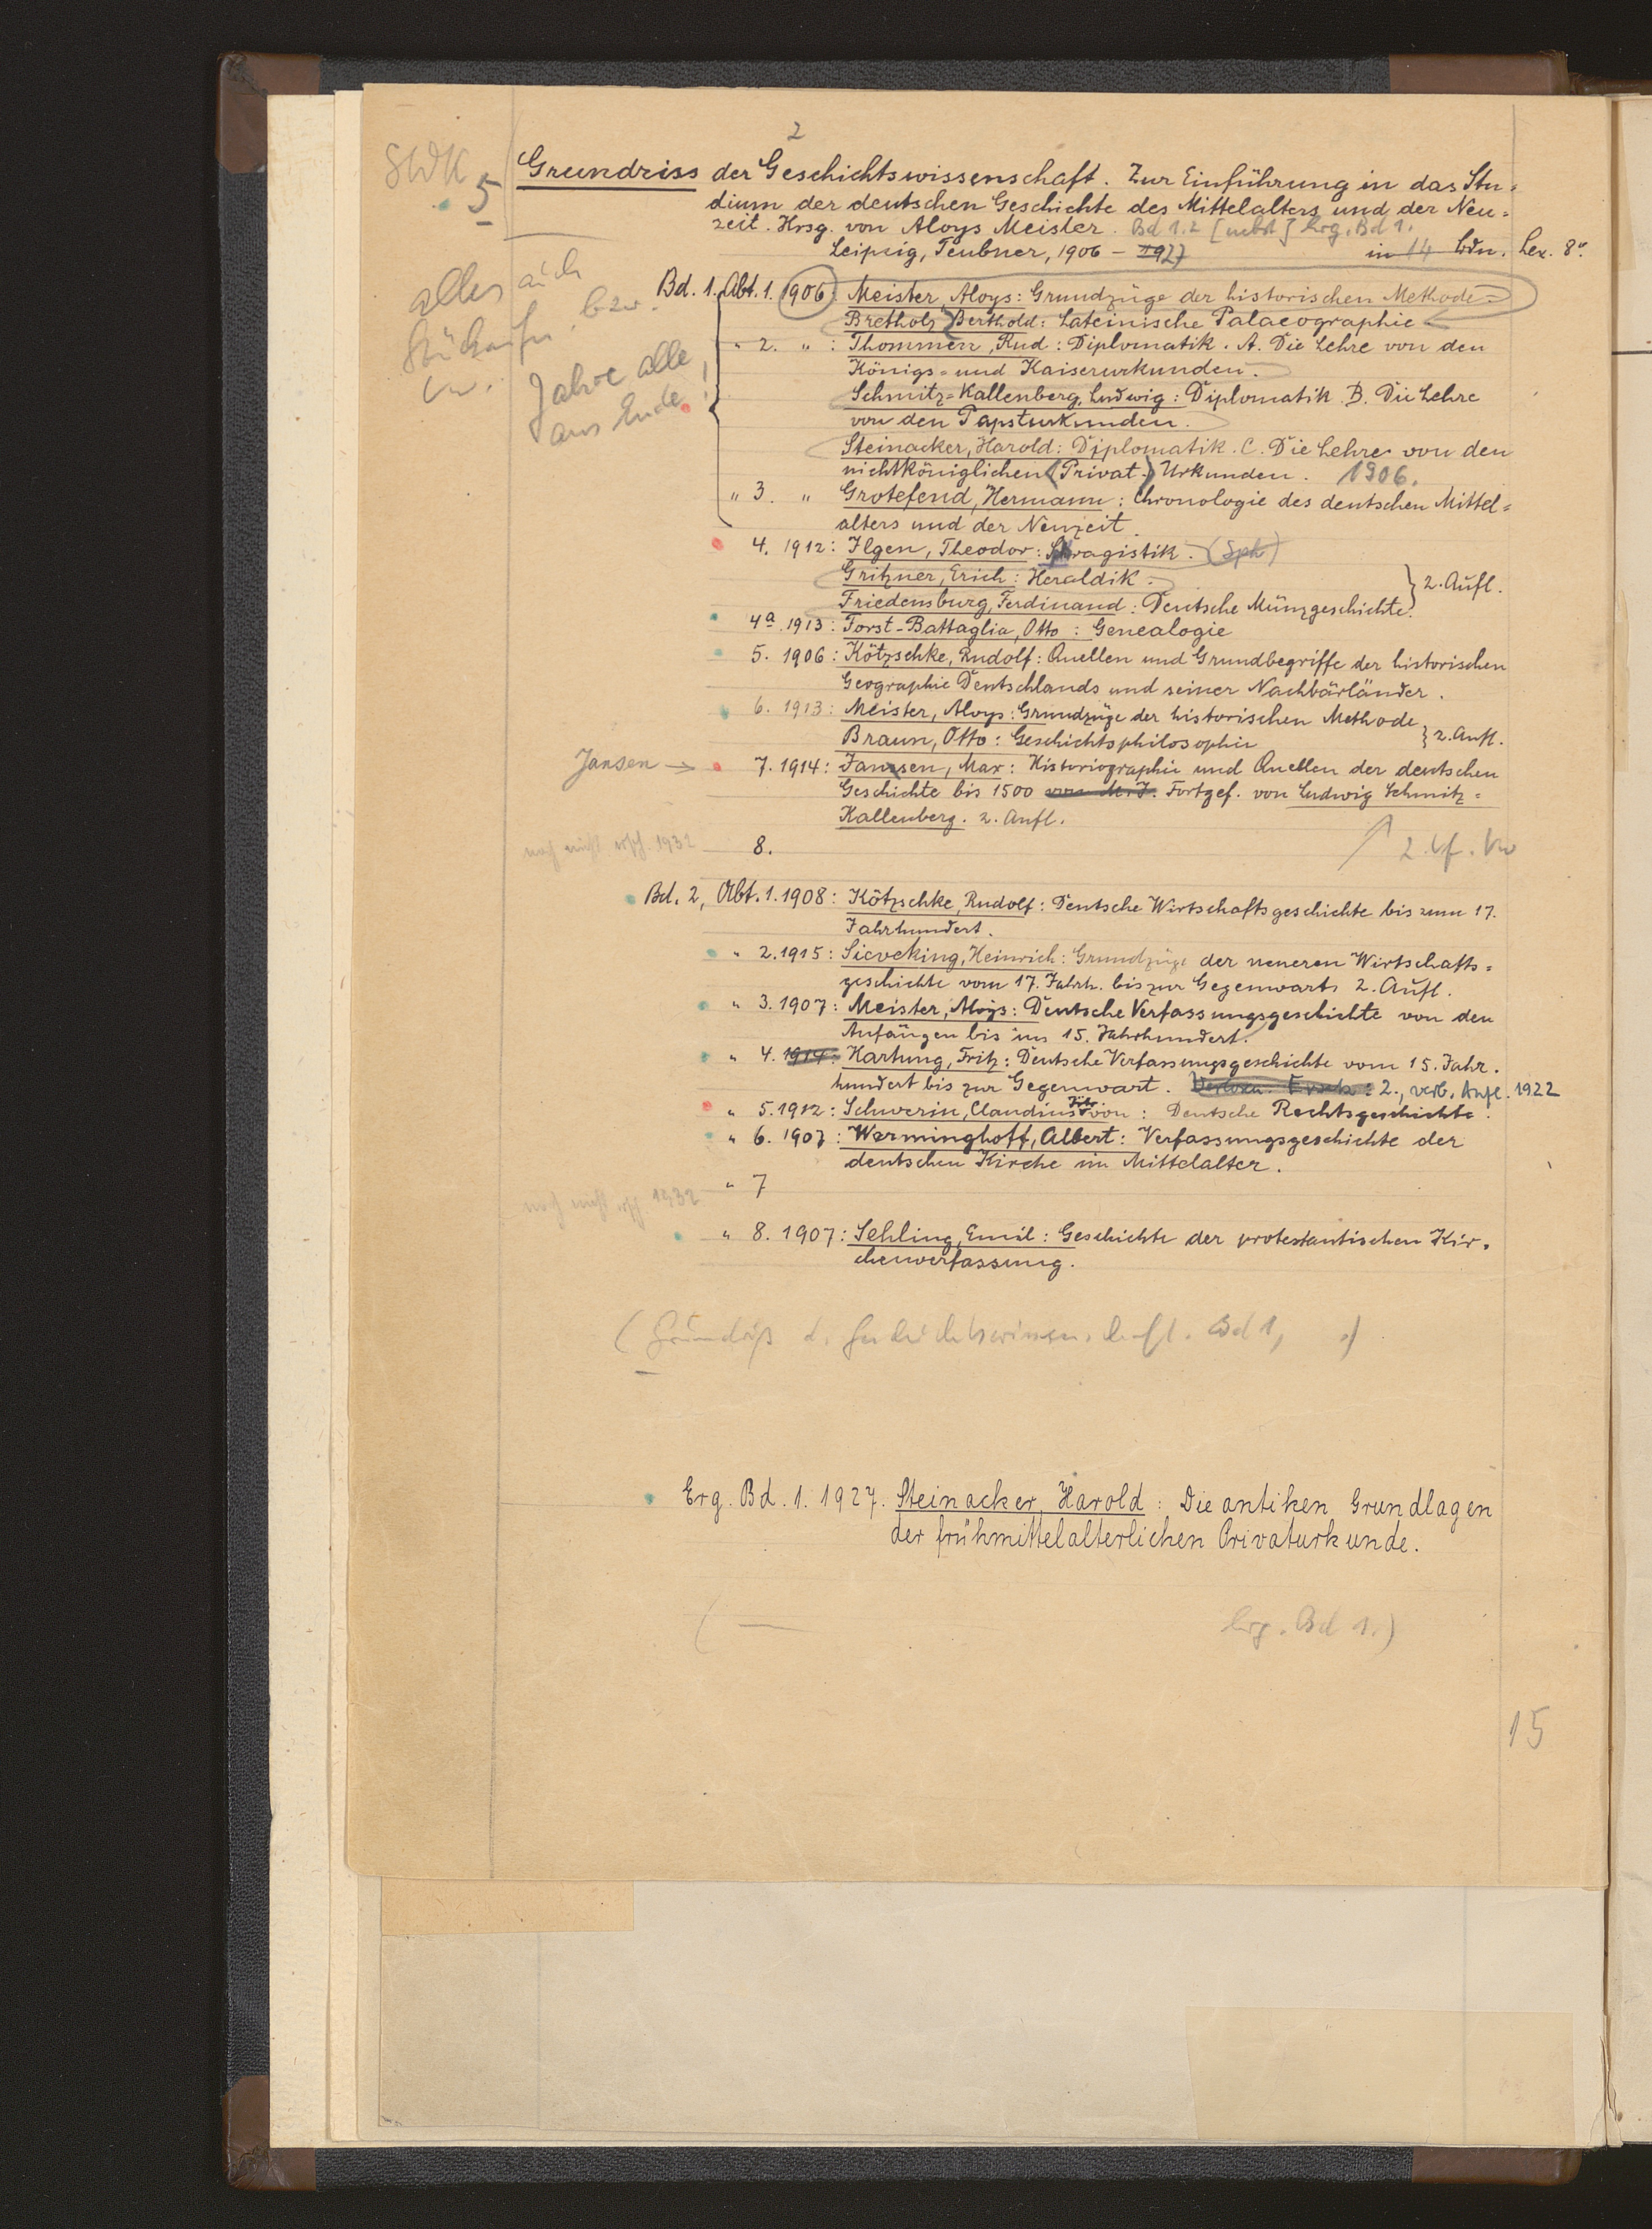 2
SWK
5
Grundriss der Geschichtswissenschaft. Zur Einführung in das Stu=
dium der deutschen Geschichte des Mittelalters und der Neu=
zeit. Hrsg. von Aloys Meister. Bd 1.2 [nebst] Erg. Bd 1.
Leipzig, Teubner, 1906 – 1927 in 14 Bdn. Lex. 8°.
alles auch
Stücknrn. bzw.
Jahre alle
ans Ende!
Bd. 1. Abt. 1. 1906: Meister, Aloys: Grundzüge der historischen Methode=
Bretholz, Berthold: Lateinische Palaeographie
" 2. " : Thommen, Rud: Diplomatik. A. Die Lehre von den
Königs= und Kaiserurkunden.
Schmitz=Kallenberg, Ludwig: Diplomatik B. Die Lehre
von den Papsturkunden.
Steinacker, Harold: Diplomatik. C. Die Lehre von den
nichtköniglichen (Privat.) Urkunden. 1906.
" 3. " Grotefend, Hermann: Chronologie des deutschen Mittel=
alters und der Neuzeit.
4. 1912: Ilgen, Theodor: Sphragistik. (Sph)
Gritzner, Erich: Heraldik.
} 2. Aufl.
Friedensburg, Ferdinand: Deutsche Münzgeschichte.
4a. 1913: Forst-Battaglia, Otto: Genealogie
5. 1906: Kötzschke, Rudolf: Quellen und Grundbegriffe der historischen
Geographie Deutschlands und seiner Nachbärländer.
6. 1913: Meister, Aloys: Grundzüge der historischen Methode
Braun, Otto: Geschichtsphilosophie } 2. Aufl.
Jansen → 7. 1914: Janssen, Max: Historiographie und Quellen der deutschen
Geschichte bis 1500 von M. J. Fortgef. von Ludwig Schmitz=
Kallenberg. 2. Aufl.
noch nicht ersch. 1932 8.
Bd. 2, Abt. 1. 1908: Kötzschke, Rudolf: Deutsche Wirtschaftsgeschichte bis zum 17.
Jahrhundert.
" 2. 1915: Sieveking, Heinrich: Grundzüge der neueren Wirtschafts=
geschichte vom 17. Jahrh. bis zur Gegenwart. 2. Aufl.
" 3. 1907: Meister, Aloys: Deutsche Verfassungsgeschichte von den
Anfängen bis ins 15. Jahrhundert.
" 4. 1914: Hartung, Fritz: Deutsche Verfassungsgeschichte vom 15. Jahr.
hundert bis zur Gegenwart. Verloren. Ersetz.: 2., verb. Aufl. 1922
" 5. 1912: Schwerin, Claudius Frhr. von: Deutsche Rechtsgeschichte.
" 6. 1907: Werminghoff, Albert: Verfassungsgeschichte der
deutschen Kirche im Mittelalter.
noch nicht ersch. 1932 " 7
" 8. 1907: Sehling, Emil: Geschichte der protestantischen Kir.
chenverfassung.
(Grundriß d. Geschichtswissenschaft. Bd 1, .)
Erg. Bd. 1. 1927. Steinacker, Harold: Die antiken Grundlagen
der frühmittelalterlichen Privaturkunde.
( — Erg. Bd 1.)
15